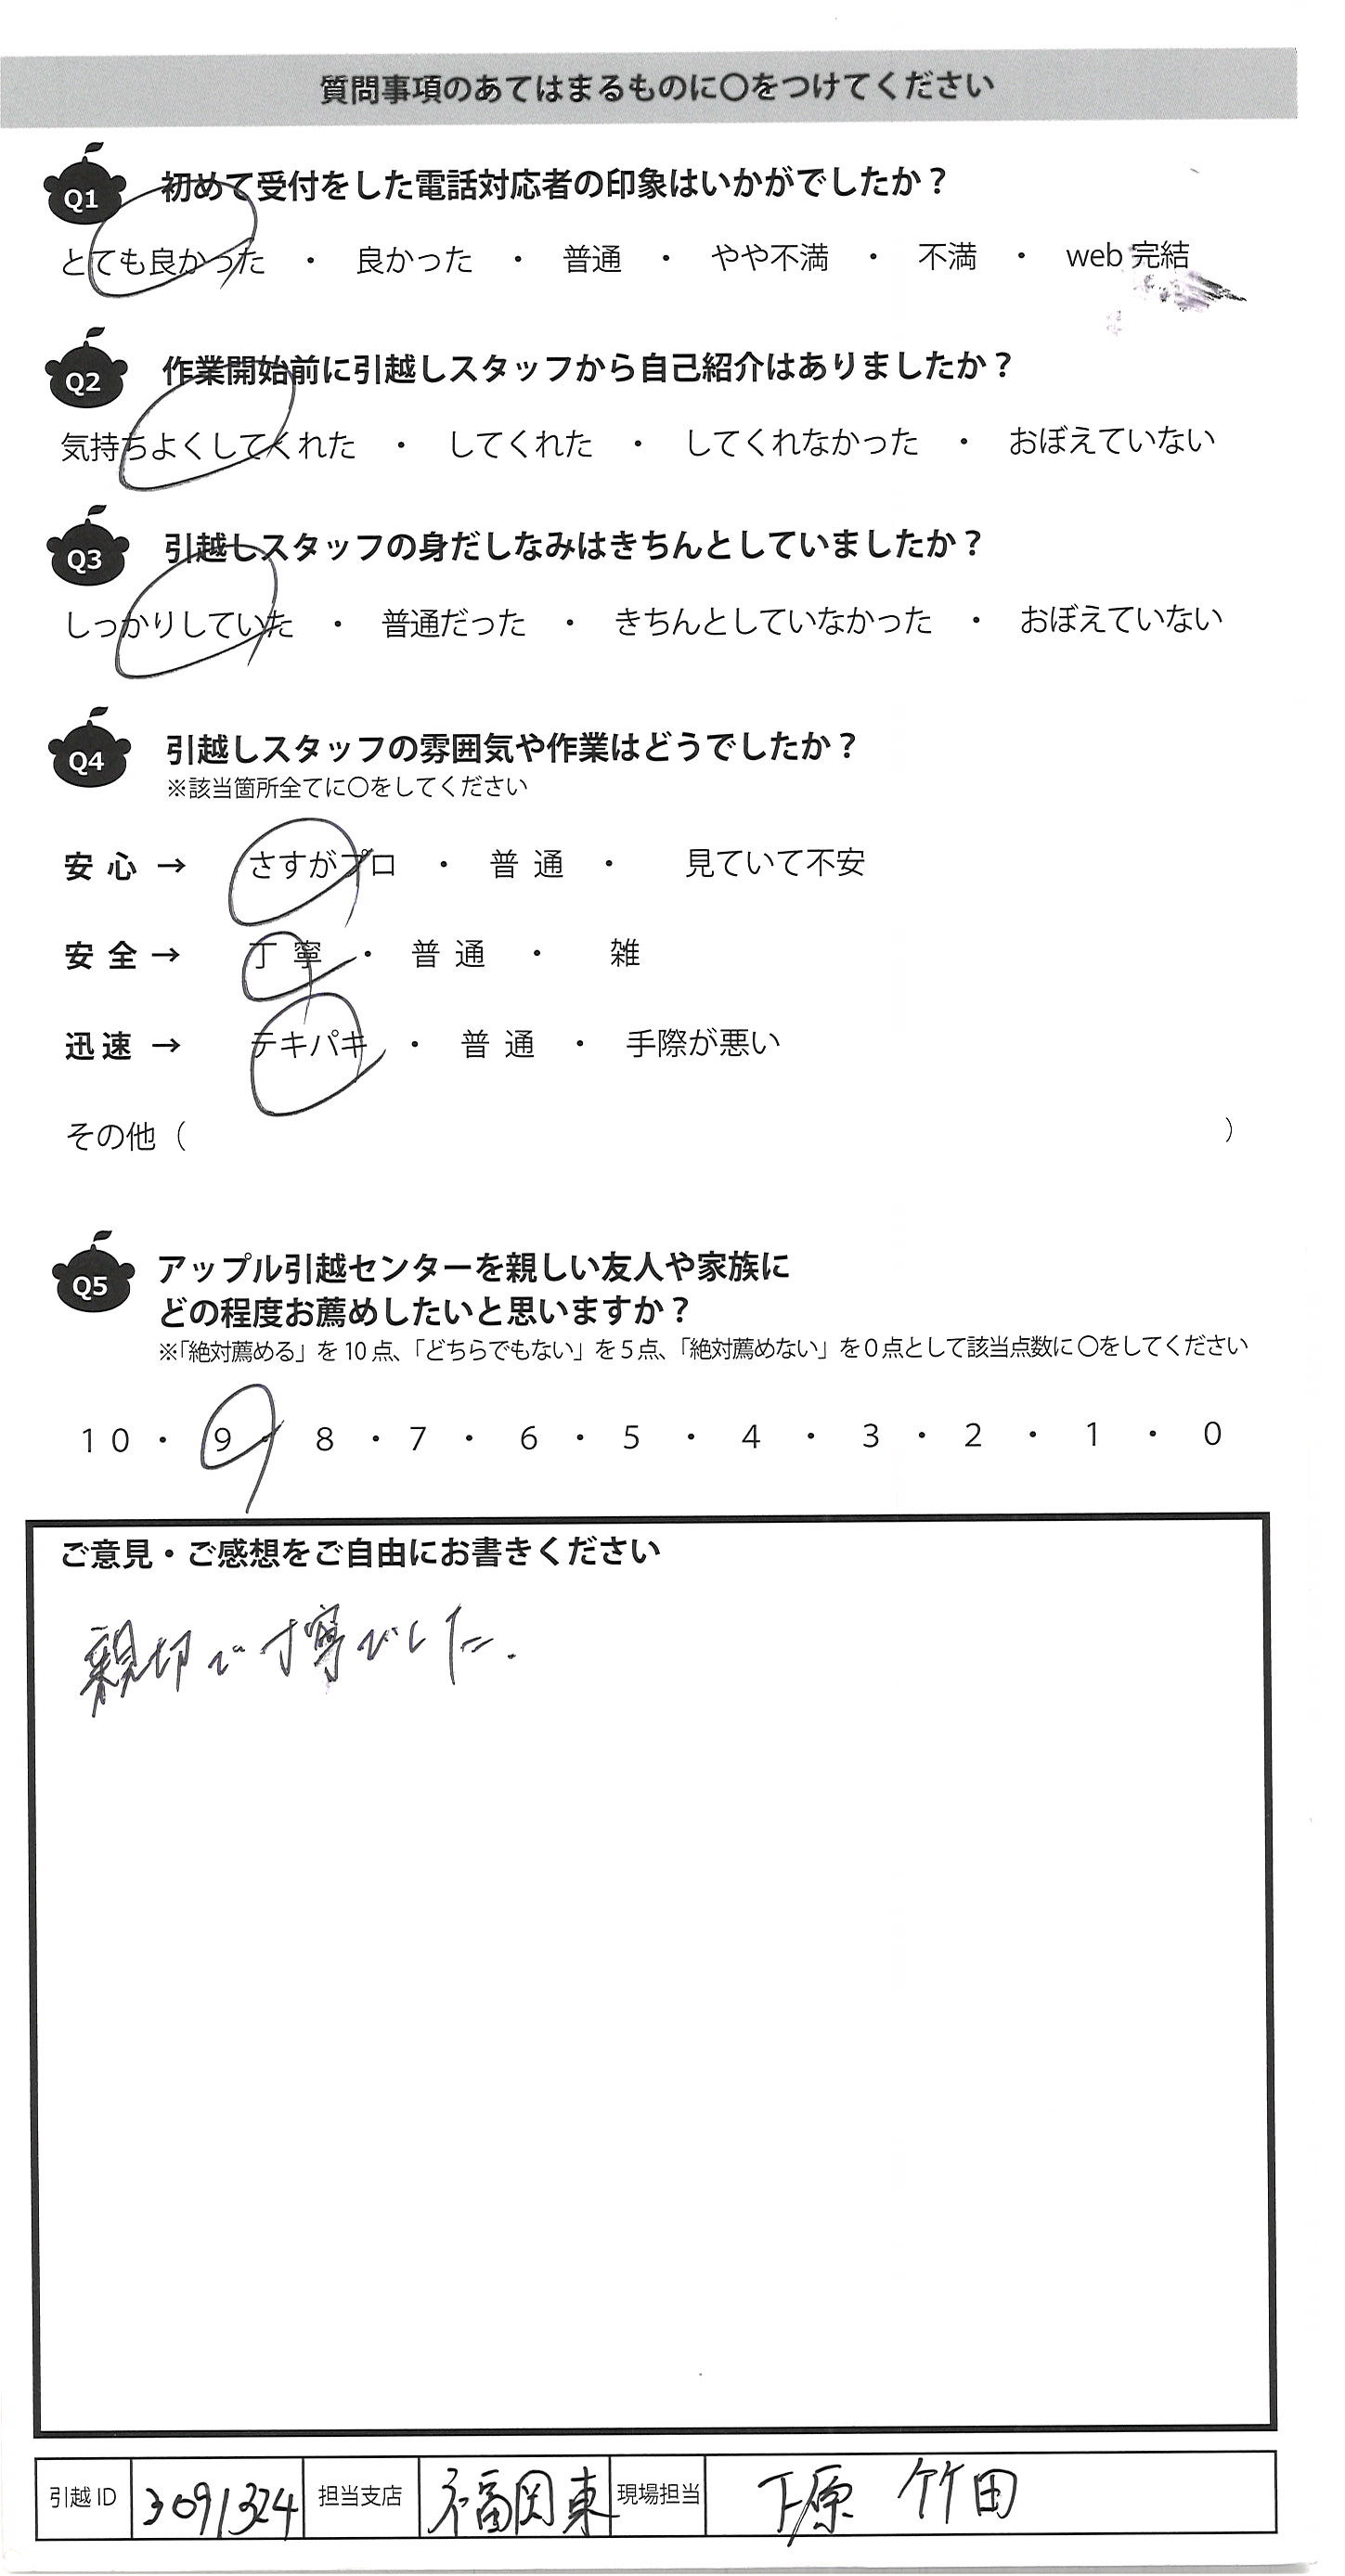 質問事項のあてはまるものに〇をつけてください
Q1 初めて受付をした電話対応者の印象はいかがでしたか？
とても良かった ・ 良かった ・ 普通 ・ やや不満 ・ 不満 ・ web 完結
Q2 作業開始前に引越しスタッフから自己紹介はありましたか？
気持ちよくしてくれた ・ してくれた ・ してくれなかった ・ おぼえていない
Q3 引越しスタッフの身だしなみはきちんとしていましたか？
しっかりしていた ・ 普通だった ・ きちんとしていなかった ・ おぼえていない
Q4 引越しスタッフの雰囲気や作業はどうでしたか？
※該当箇所全てに〇をしてください
安心 → さすがプロ ・ 普通 ・ 見ていて不安
安全 → 丁寧 ・ 普通 ・ 雑
迅速 → テキパキ ・ 普通 ・ 手際が悪い
その他（ ）
Q5 アップル引越センターを親しい友人や家族に
どの程度お薦めしたいと思いますか？
※「絶対薦める」を10点、「どちらでもない」を5点、「絶対薦めない」を0点として該当点数に〇をしてください
10 ・ 9 ・ 8 ・ 7 ・ 6 ・ 5 ・ 4 ・ 3 ・ 2 ・ 1 ・ 0
ご意見・ご感想をご自由にお書きください
親切で丁寧でした.
引越ID 3091324 担当支店 福岡東 現場担当 下原 竹田